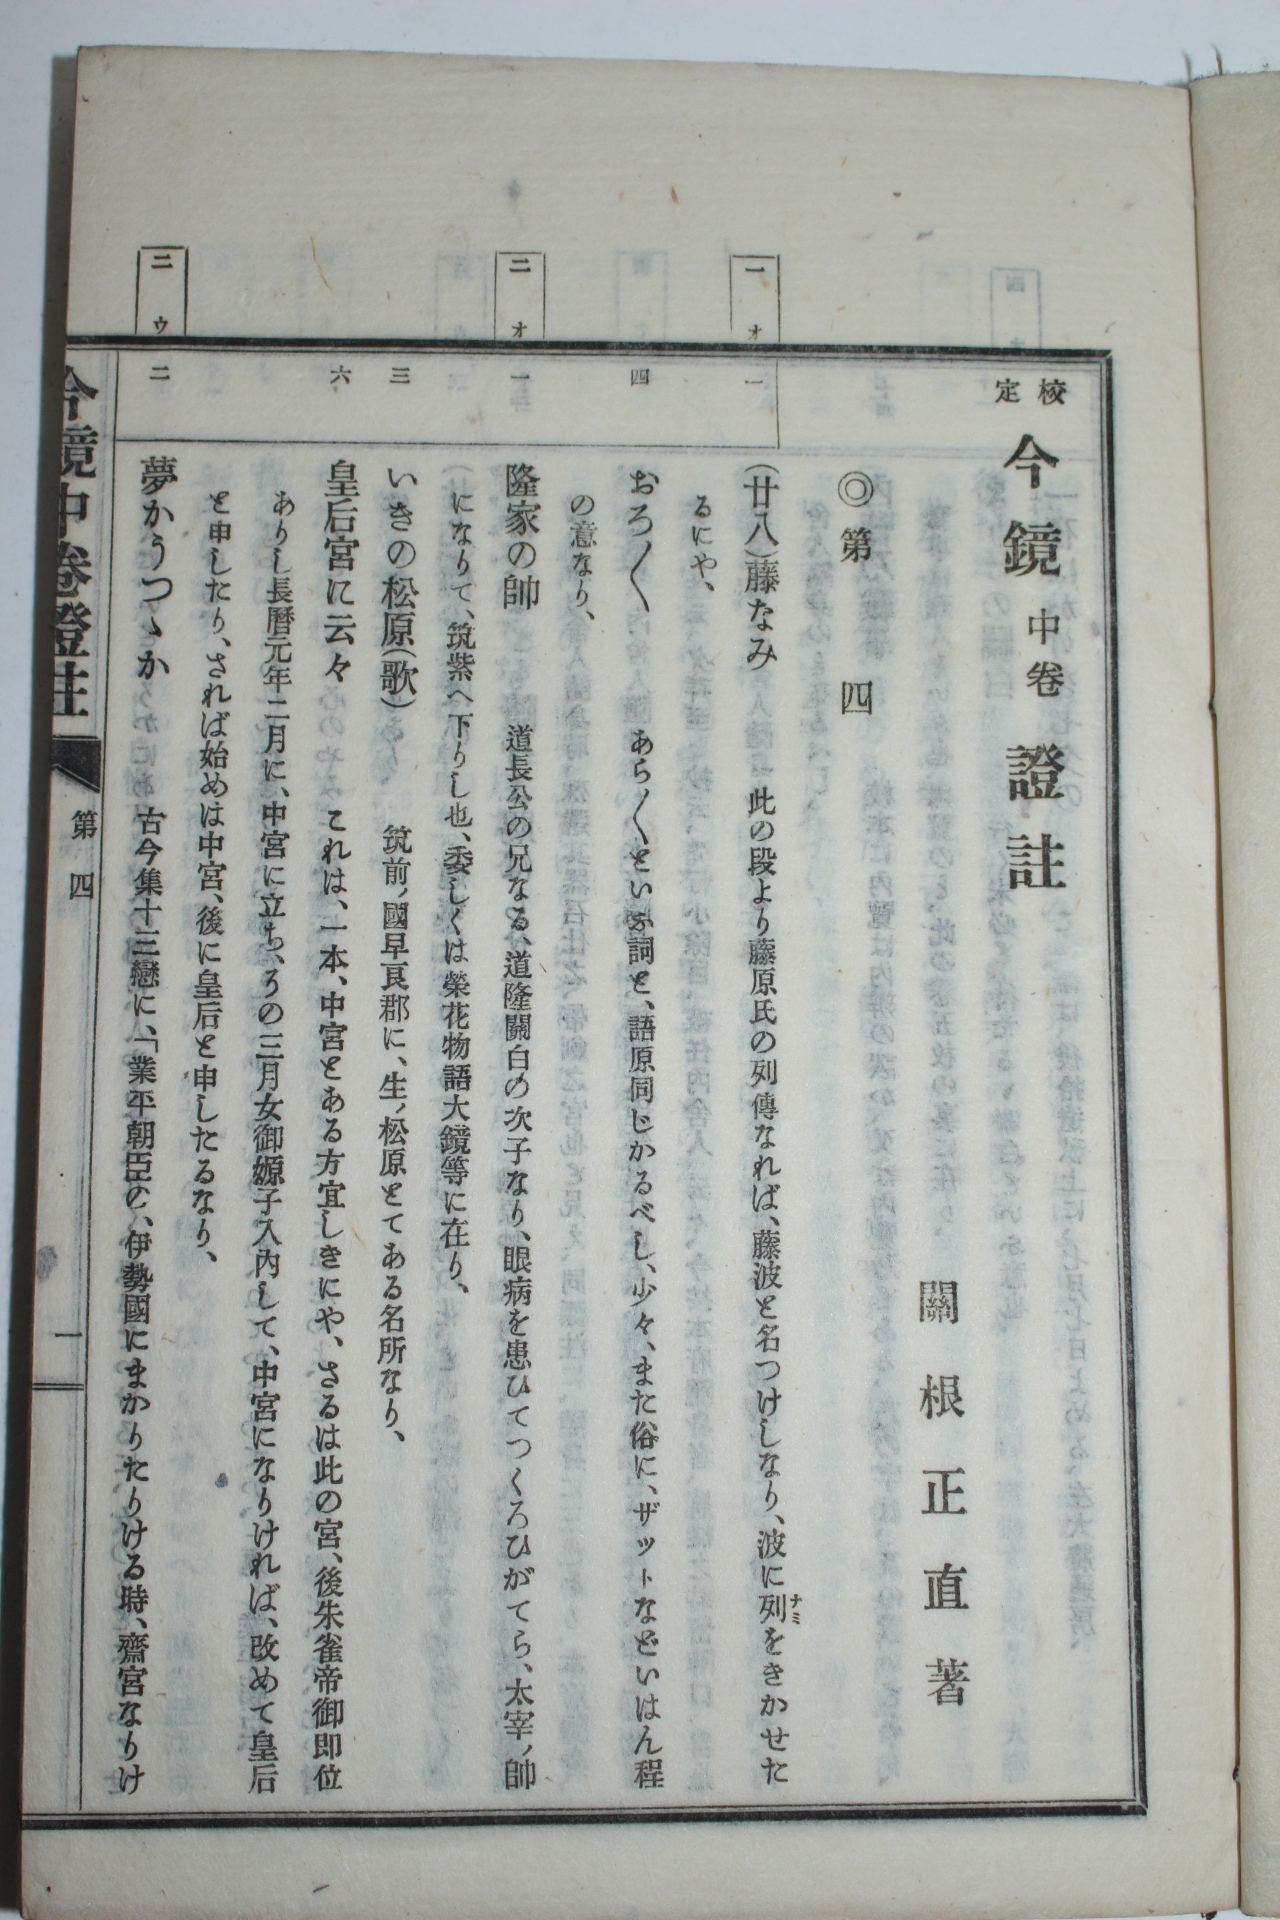 校定 今鏡 中卷 證註
關根正直著
◎第四
一オ
一
(廿八)藤なみ 此の段より藤原氏の列傳なれば、藤波と名つけしなり、波に列をきかせた
ナミ
るにや、
四
おろ〳〵 あら〳〵といふ詞と、語原同じかるべし、少々、また俗に、ザットなどいはん程
の意なり、
二オ
一
隆家の帥 道長公の兄なる、道隆關白の次子なり、眼病を患ひてつくろひがてら、太宰ノ帥
になりて、筑紫へ下りし也、委しくは榮花物語大鏡等に在り、
三
いきの松原(歌) 筑前ノ國早良郡に、生ノ松原とてある名所なり、
六
皇后宮に云々 これは、一本、中宮とある方宜しきにや、さるは此の宮、後朱雀帝御即位
ありし長曆元年二月に、中宮に立ち、その三月女御嫄子入内して、中宮になりければ、改めて皇后
と申したり、されば始めは中宮、後に皇后と申したるなり、
二ウ
二
夢かうつゝか 古今集十三戀に、「業平朝臣の、伊勢國にまかりたりける時、齋宮なりけ
今鏡中卷證註
第四
一